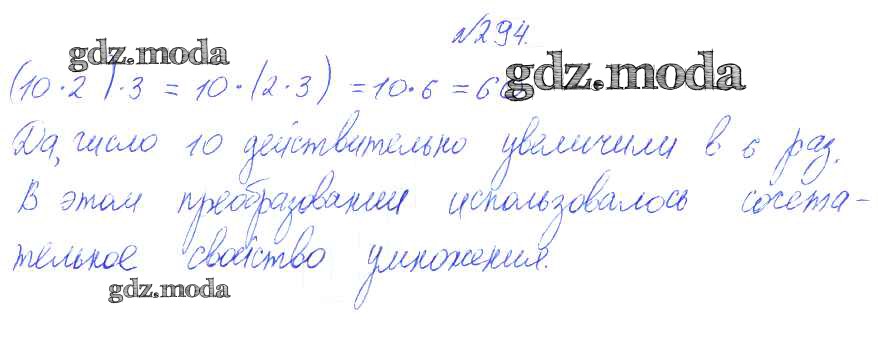 №294.
gdz.moda
(10·2)·3 = 10·(2·3) = 10·6 = 60
gdz.moda
Да, число 10 действительно увеличили в 6 раз.
В этом преобразовании использовалось сочета-
тельное свойство умножения.
gdz.moda